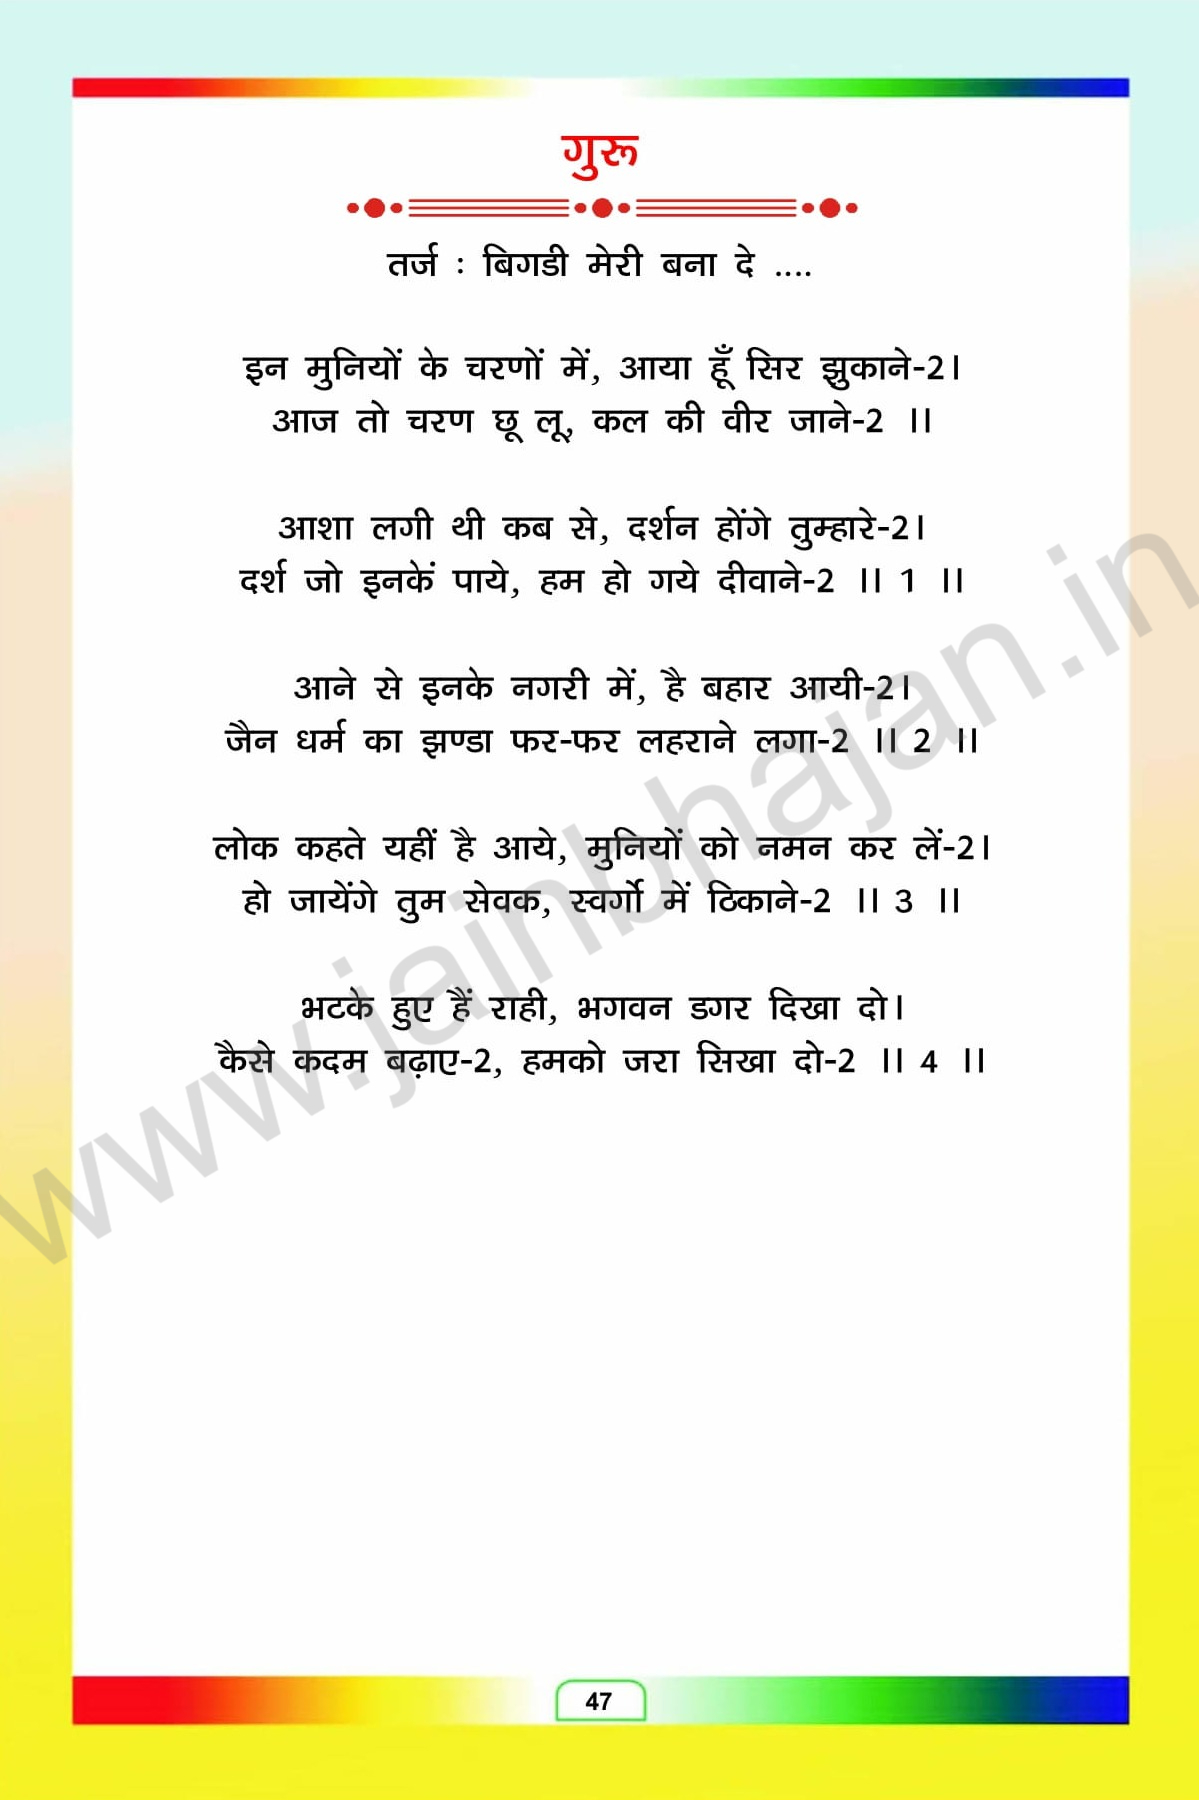 गुरू
तर्ज : बिगडी मेरी बना दे ....
इन मुनियों के चरणों में, आया हूँ सिर झुकाने-2।
आज तो चरण छू लू, कल की वीर जाने-2 ।।
आशा लगी थी कब से, दर्शन होंगे तुम्हारे-2।
दर्श जो इनकें पाये, हम हो गये दीवाने-2 ।। 1 ।।
आने से इनके नगरी में, है बहार आयी-2।
जैन धर्म का झण्डा फर-फर लहराने लगा-2 ।। 2 ।।
लोक कहते यहीं है आये, मुनियों को नमन कर लें-2।
हो जायेंगे तुम सेवक, स्वर्गो में ठिकाने-2 ।। 3 ।।
भटके हुए हैं राही, भगवन डगर दिखा दो।
कैसे कदम बढ़ाए-2, हमको जरा सिखा दो-2 ।। 4 ।।
www.jainbhajan.in
47